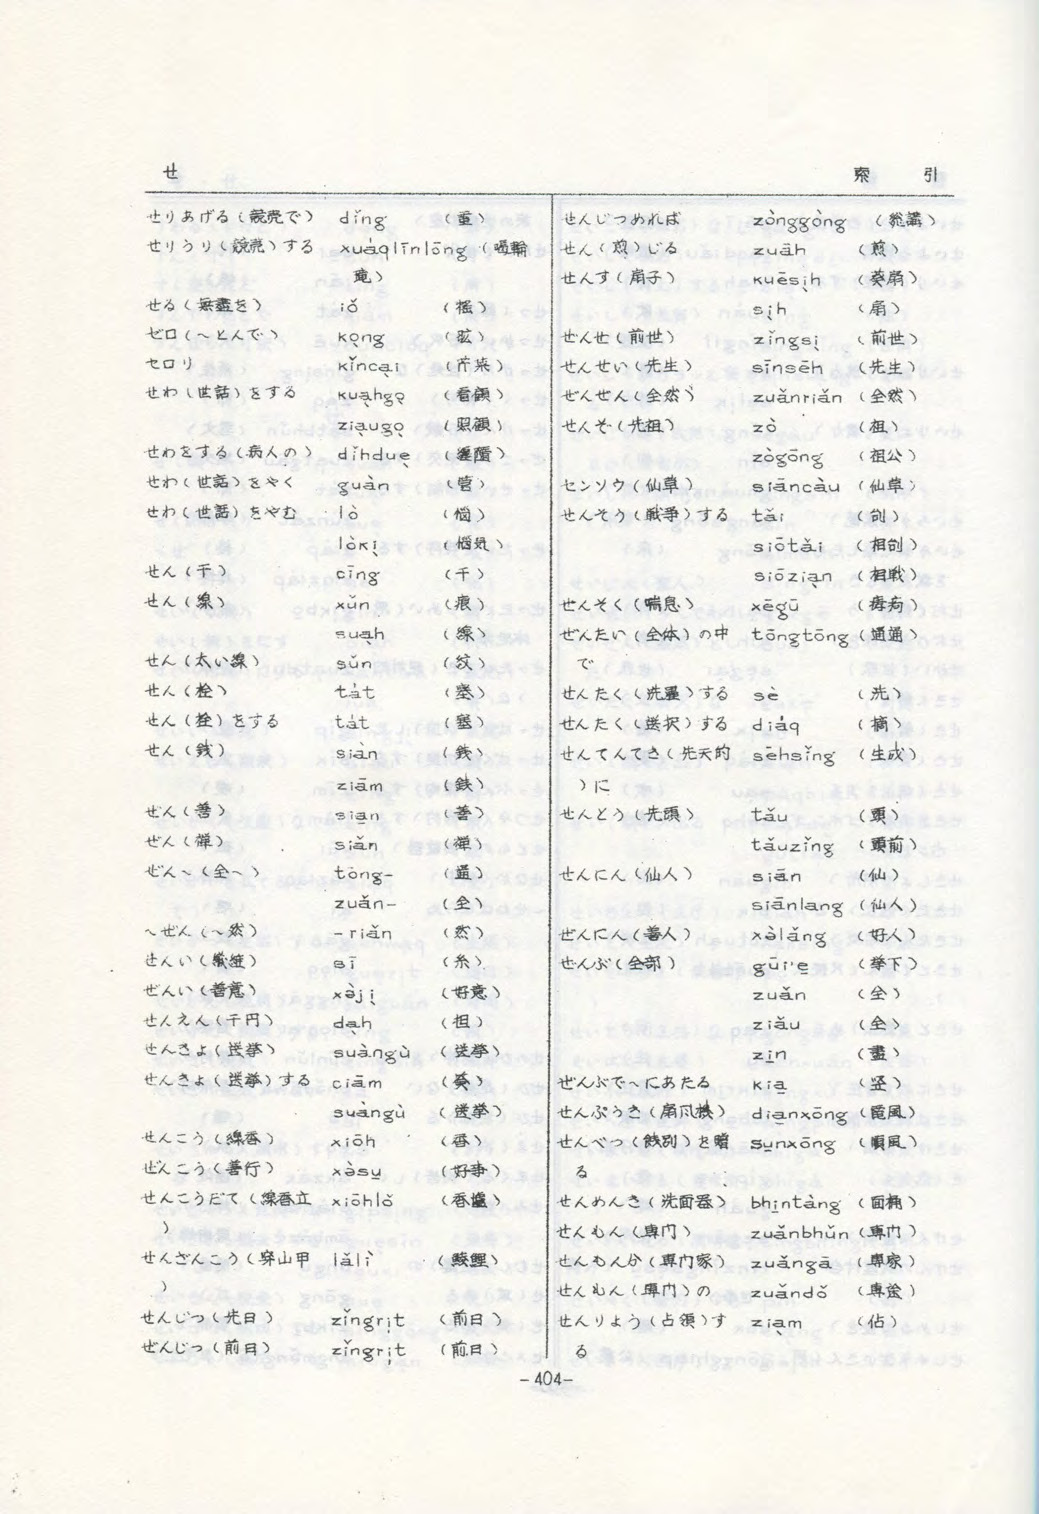 せ
索 引
せりあげる(競売で) dǐng (重)
せりうり(競売)する xuáqlīnlōng (喝輪
竜)
せる(無盡を) iǒ (搖)
ゼロ(〜とんで) kọng
セロリ kǐncại (芹菜)
せわ(世話)をする kuạhgọ (看顧)
ziạugọ (照顧)
せわをする(病人の) dǐhduẹ
せわ(世話)をやく guàn
せわ(世話)をやむ lò (悩)
lòkị (悩気)
せん(千) cīng (千)
せん(線) xǔn (痕)
suạh (線)
せん(太い線) sǔn (紋)
せん(栓) tát
せん(栓)をする tát
せん(銭) siàn (銭)
ziām
ぜん(善) siạn (善)
ぜん(禅) siǎn (禅)
ぜん〜(全〜) tōng- (通)
zuǎn- (全)
〜ぜん(〜然) -riǎn (然)
せんい(繊維) sī (糸)
ぜんい(善意) xəjị (好意)
せんえん(千円) dạh (担)
せんきょ(送挙) suàngù (送挙)
せんきょ(送挙)する ciām
suàngù (送挙)
せんこう(線香) xiōh (香)
ぜんこう(善行) xəsụ (好事)
せんこうだて(線香立 xiōhlò (香爐
)
せんざんこう(穿山甲 lǎlì
)
せんじつ(先日) zǐngrịt (前日)
ぜんじつ(前日) zǐngrịt (前日)
せんじつめれば zònggòng (總講)
せん(煎)じる zuāh (煎)
せんす(扇子) kuēsịh (葵扇)
sịh (扇)
ぜんせ(前世) zǐngsị (前世)
せんせい(先生) sīnsēh (先生)
ぜんぜん(全然) zuǎnriǎn (全然)
せんぞ(先祖) zò (祖)
zògōng (祖公)
センソウ(仙草) siāncàu (仙草)
せんそう(戦争)する tǎi (刣)
siōtǎi (相刣)
siōziạn (相戦)
ぜんそく(喘息) xēgū
ぜんたい(全体)の中 tōngtōng (通通)
で
せんたく(洗濯)する sè (洗)
せんたく(選択)する diáq (摘)
せんてんてき(先天的 sēhsǐng (生成)
)に
せんとう(先頭) tǎu (頭)
tǎuzǐng (頭前)
せんにん(仙人) siān (仙)
siānlang (仙人)
ぜんにん(善人) xəlǎng (好人)
ぜんぶ(全部) gūi'ẹ (挙下)
zuǎn (全)
ziǎu (全)
zịn (盡)
ぜんぶで〜にあたる kiạ
せんぷうき(扇风機) diạnxōng (電風)
せんべつ(餞別)を贈 sụnxōng (順風)
る
せんめんき(洗面器) bhịntàng (面桶)
せんもん(専门) zuǎnbhǔn (専门)
せんもん分(専门家) zuǎngā (専家)
せんもん(専门)の zuǎndǒ (専途)
せんりょう(占領)す ziạm (佔)
る
-404-